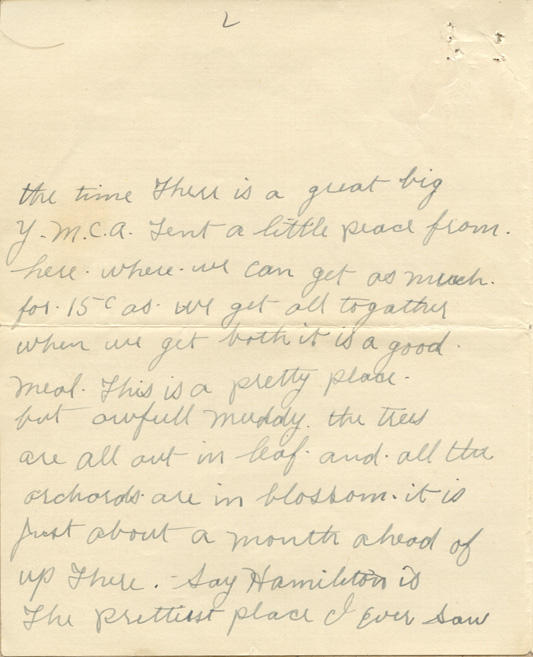 2
the time There is a great big
Y.M.C.A. Tent a little peace from.
here. where. we can get as much.
for. 15c as. we get all togather
when we get both it is a good.
meal. This is a pretty place.
but awfull muddy. the trees
are all out in leaf. and. all the
orchards. are in blossom. it is
Just about a month ahead of
up There. - Say Hamilton is
The prettiest place I ever saw